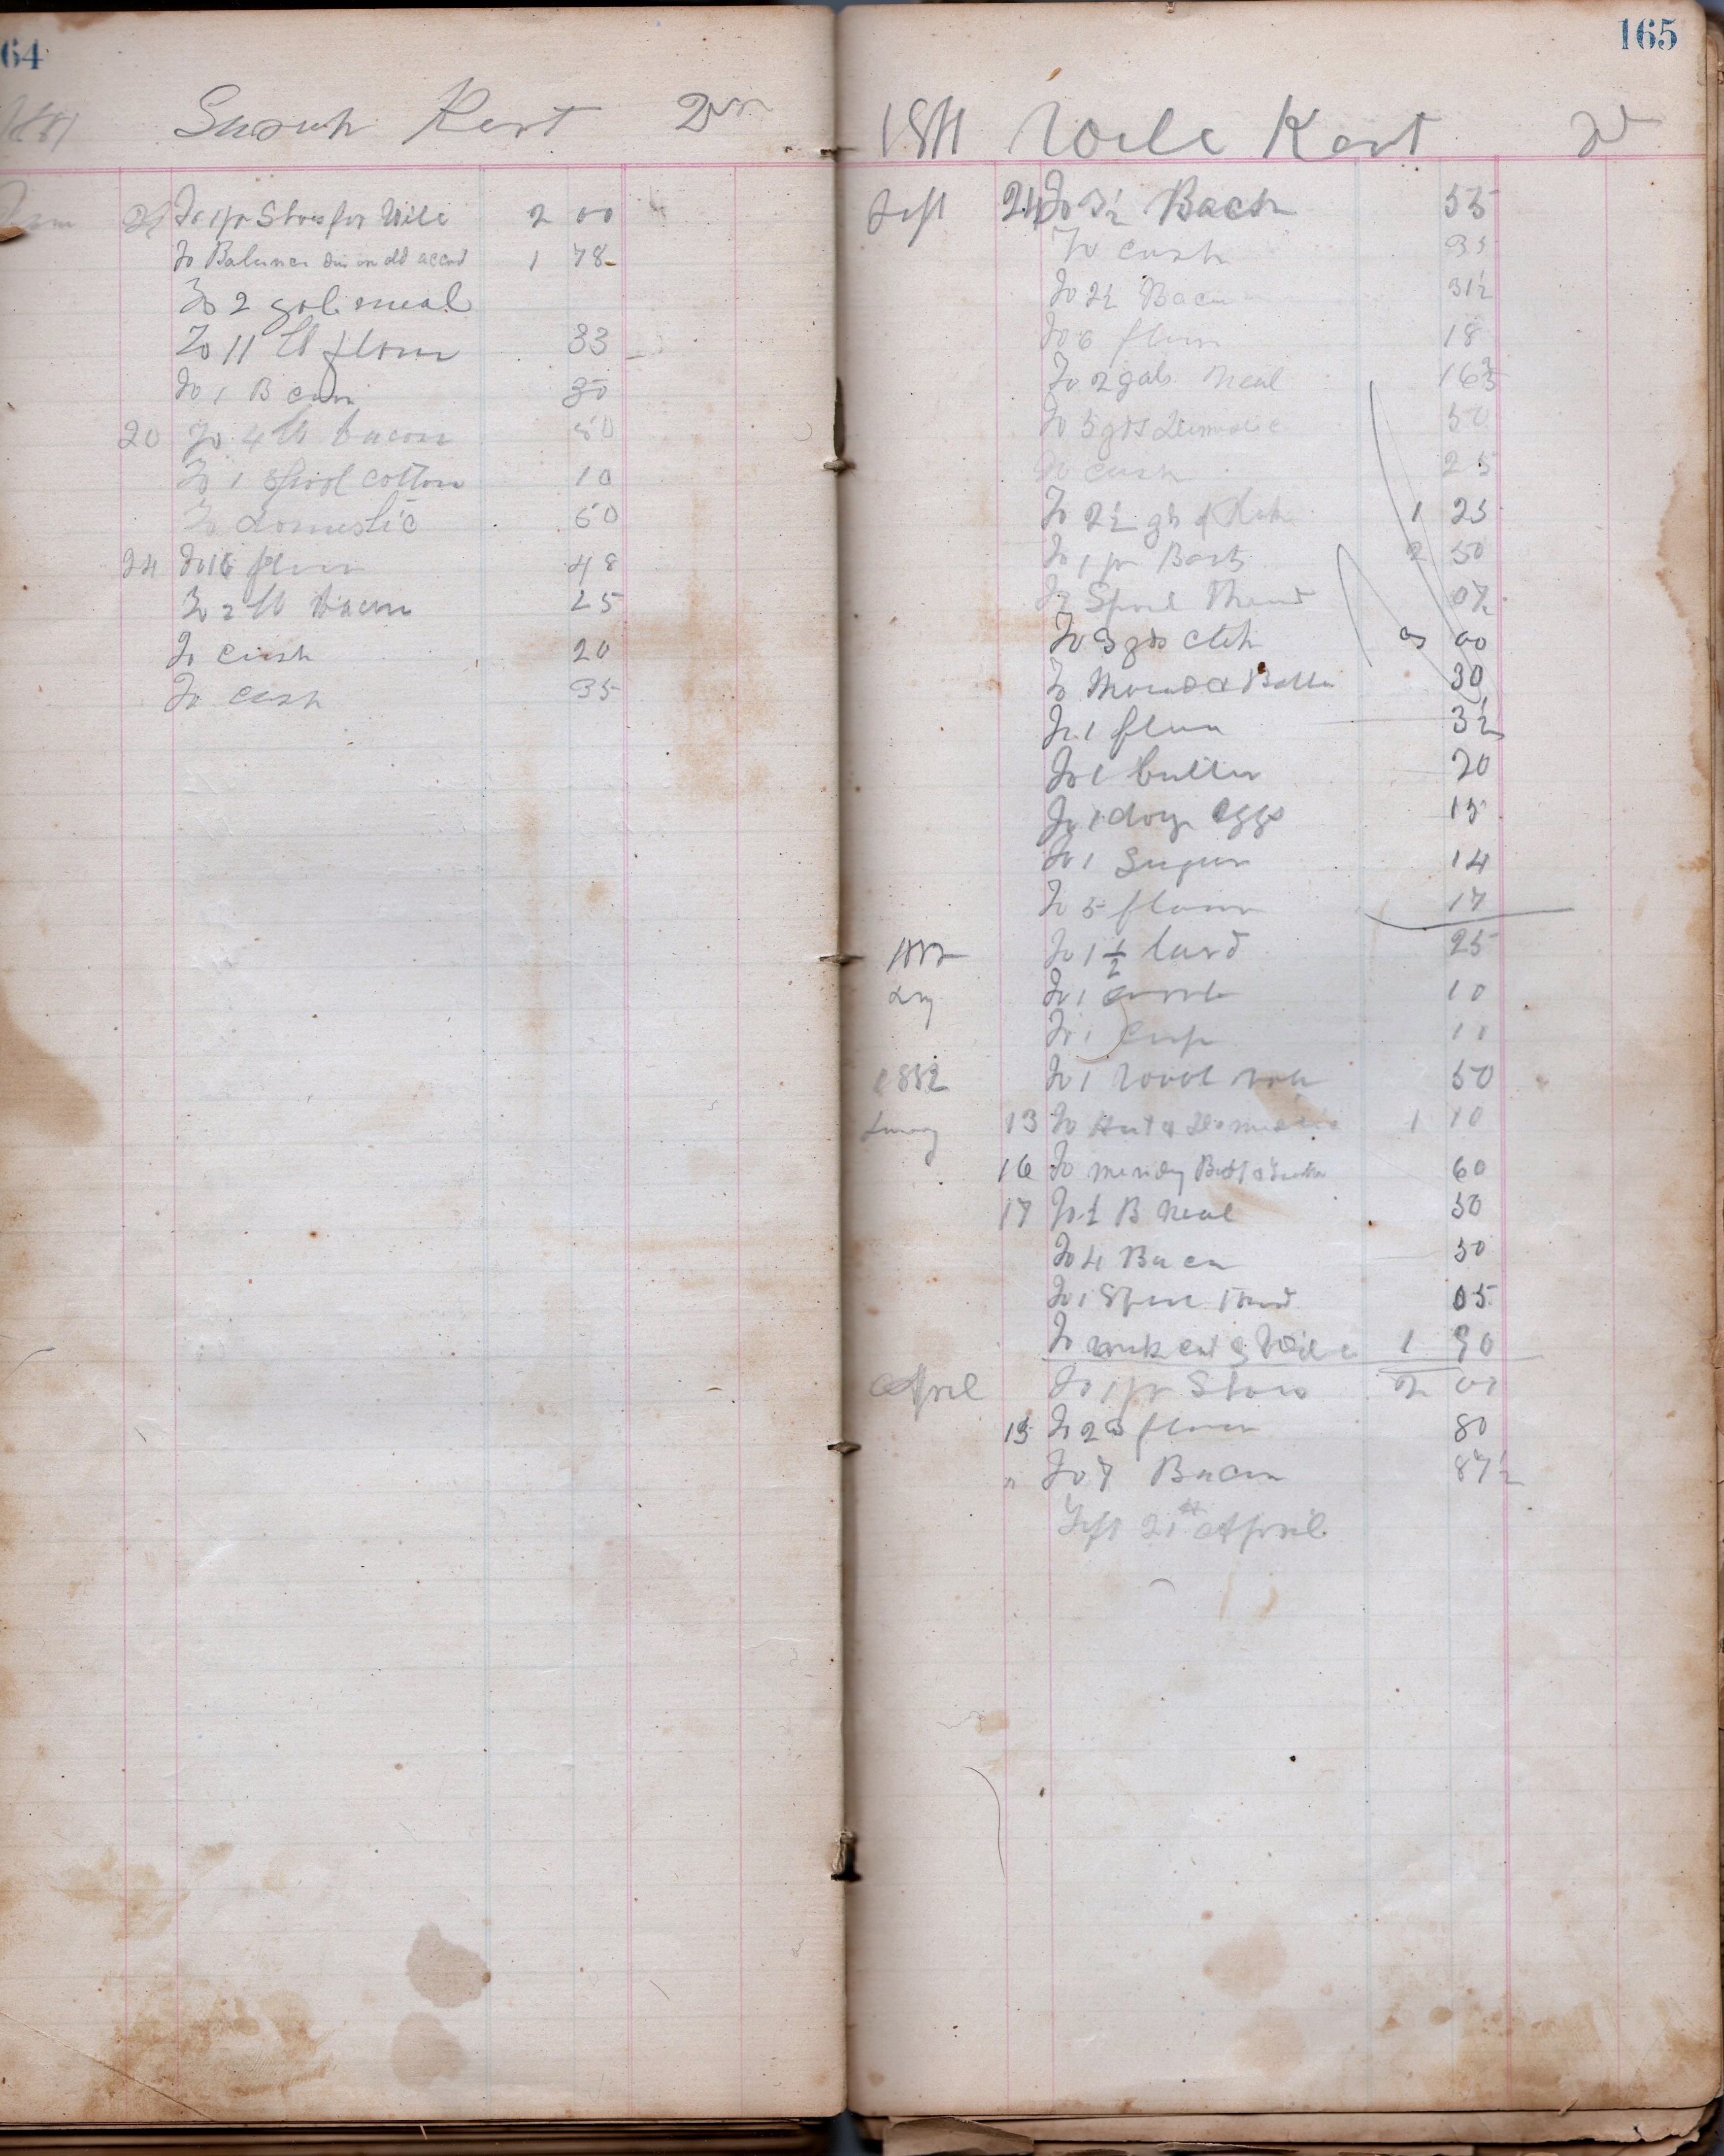 64
1881 Susuh Kert Dr
24 To 1 pr Shoes for Wile 2 00
To Balance due on old accont 1 78
To 2 gal meal
To 11 lb flour 33
To 1 B 30
20 To 4 lb bacon 50
To 1 Spool cotton 10
To domestic 50
24 To 16 flour 48
To 2 lb bacon 25
To cash 20
To cash 35
165
1881 Wile Kert Dr
Sept 24 To 3½ Bacon 35
To cash 35
To 2½ Bacon 31½
To 6 flour 18
To 2 gals meal 16
To 5 yds Domestic 50
To cash 25
To 2½ yds 1 25
To 1 pr Boots 2 50
To Spool Thread 07
To 3 yds cloth 3 00
To 30
To 1 flour 3½
To 1 butter 20
To 1 doz eggs 15
To 1 Sugar 14
To 5 flour 17
To 1 ½ lard 25
To 1 10
To 1 Cup 10
1882 To 1 50
13 To Hat & Domestic 1 10
16 To 60
17 To ½ B Meal 50
To 4 Bacon 50
To 1 Spool Thread 05
To Wile 1 90
April To 1 pr Shoes 2 00
15 To 25 flour 80
" To 7 Bacon 87½
Left 21st April